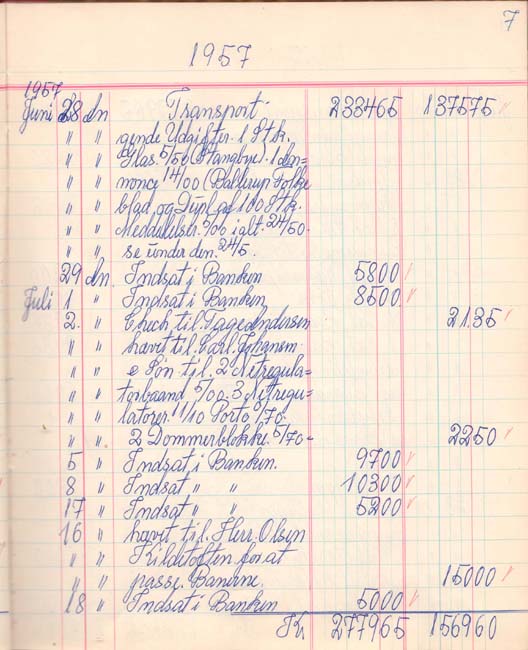 7
1957
1957
Juni 28 dn Transport 233465 137575
" " gende Udgifter. 1 Stk.
" " Glas 5/50 (Stangbye). 1 An=
" " nonce 14/00 (Ballerup Folke
" " blad og Dupl. af 100 Stk.
" " Meddelelser. ialt. 24/50.
" " se under den. 24/5.
29 dn. Indsat i Banken 5800
Juli 1 " Indsat i Banken 8500
2. " Check til. Tage Andersen 2135
" " havet til. Carl. Johansen
" " e Søn til. 2 Netregula=
" " torbaand 5/00. 3 Netregu=
" " latorer. 11/10 Porto /70
" " 2 Dommerblokke. 5/70 - 2250
5 " Indsat i Banken. 9700
8 " Indsat " " 10300
17 " Indsat " " 5200
16 " havet til. Herr. Olsen
" " Kildetoften for at
" " passe. Banerne. 15000
18 " Indsat i Banken 5000
Kr 277965 156960